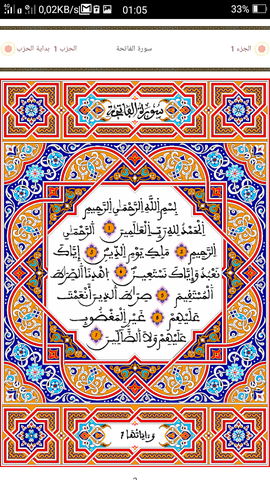 0,02KB/s 01:05 33%
الجزء 1 سورة الفاتحة الحزب 1 بداية الحزب
سورة الفاتحة
بِسْمِ اِللَّهِ اِلرَّحْمَٰنِ اِلرَّحِيمِ
اِلْحَمْدُ لِلهِ رَبِّ اِلْعَٰلَمِينَ 1 اَلرَّحْمَٰنِ
اِلرَّحِيمِ 2 مَلِكِ يَوْمِ اِلدِّينِ 3 إِيَّاكَ
نَعْبُدُ وَإِيَّاكَ نَسْتَعِينُ 4 اِهْدِنَا اَلصِّرَٰطَ
اَلْمُسْتَقِيمَ 5 صِرَٰطَ اَلذِينَ أَنْعَمْتَ
عَلَيْهِمْ 6 غَيْرِ اِلْمَغْضُوبِ
عَلَيْهِمْ وَلَا اَلضَّآلِّينَ
وءاياتها 7